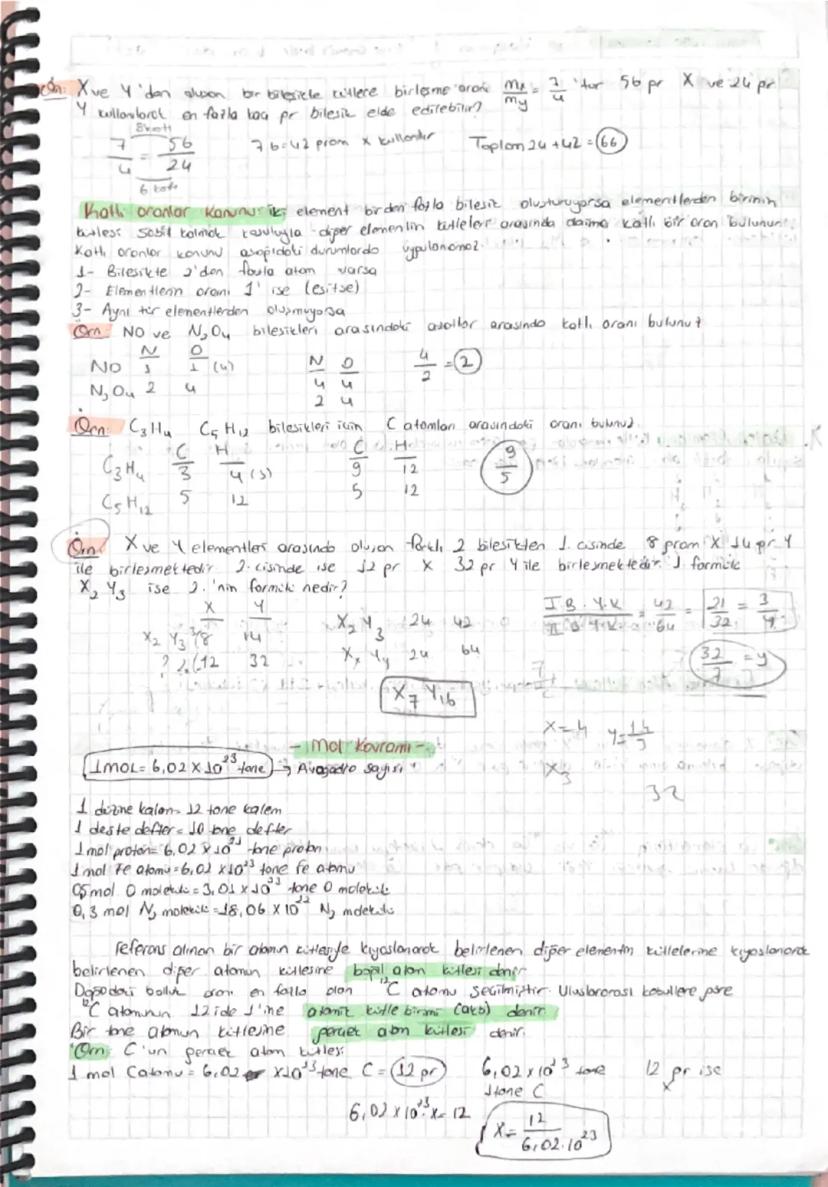 Örn: X ve Y'den oluşan bir bileşikte kütlece birleşme oranı mx/my = 7/4 'tür 56 gr X ve 24 gr
Y kullanılarak en fazla kaç gr bileşik elde edilebilir?
8 katı
7/4 = 56/24
6 katı
7 6=42 gram X kullanılır
Toplam 24 + 42 = 66
Katlı oranlar kanunu: iki element birden fazla bileşik oluşturuyorsa elementlerden birinin
kütlesi sabit kalmak koşuluyla diğer elementin kütleleri arasında daima katlı bir oran bulunur.
Katlı oranlar kanunu aşağıdaki durumlarda uygulanamaz.
1- Bileşikte 2'den fazla atom varsa
2- Elementlerin oranı 1' ise (eşitse)
3- Aynı tür elementlerden oluşmuyorsa
Örn: NO ve N2O4 bileşikleri arasındaki arasında katlı oranı bulunuz
N O
NO 1 1 (4)
N2O4 2 4
N O
4 4
2 4
4/2 = 2
Örn: C3H4 C5H12 bileşikleri için C atomları arasındaki oranı bulunuz.
C H
C3H4 3 4 (3)
C5H12 5 12
C H
9 12
5 12
9/5
Örn: X ve Y elementleri arasında oluşan farklı 2 bileşikten 1. cisinde 8 gram X 14 gr Y
ile birleşmektedir 2. cisinde ise 12 gr X 32 gr Y ile birleşmektedir. 1 formülü
X2 Y3 ise 2.'nin formülü nedir?
X Y
X2 Y3 3/8 14
? 2/12 32
X2 Y3 24 42
Xx Yy 24 64
I.B.Y.K / II.B.Y.K = 42/64 = 21/32 = 3/y
32/7 = y
X7 Y16
X=4 y=
X3
32
- Mol Kavramı -
1 MOL = 6,02 x 10^23 tane → Avogadro sayısı
1 düzine kalem = 12 tane kalem
1 deste defter = 10 tane defter
1 mol proton = 6,02 x 10^23 tane proton
1 mol Fe atomu = 6,02 x 10^23 tane Fe atomu
0,5 mol O molekülü = 3,01 x 10^23 tane O molekülü
0,3 mol N2 molekülü = 18,06 x 10^22 N2 molekülü
Referans alınan bir atomun kütlesiyle kıyaslanarak belirlenen diğer elementin kütlelerine kıyaslanarak
belirlenen diğer atomun kütlesine bağıl atom kütlesi denir
Doğadaki bolluk oranı en fazla olan 12C atomu seçilmiştir. Uluslararası koşullere göre
12C atomunun 12'de 1'ine atomik kütle birimi (akb) denir.
Bir tane atomun kütlesine gerçek atom kütlesi denir.
Örn: C'un gerçek atom kütlesi
1 mol C atomu = 6,02 x10^23 tane C = 12 gr
6,02 x 10^23 tane 12 gr ise
1 tane C x
6,02 x 10^23. x = 12
X = 12 / 6,02.10^23